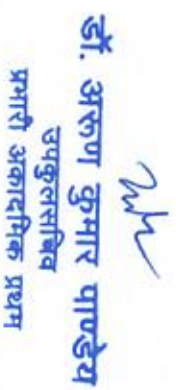 डॉ. अरुण कुमार पाण्डेय
उपकुलसचिव
प्रभारी अकादमिक प्रथम